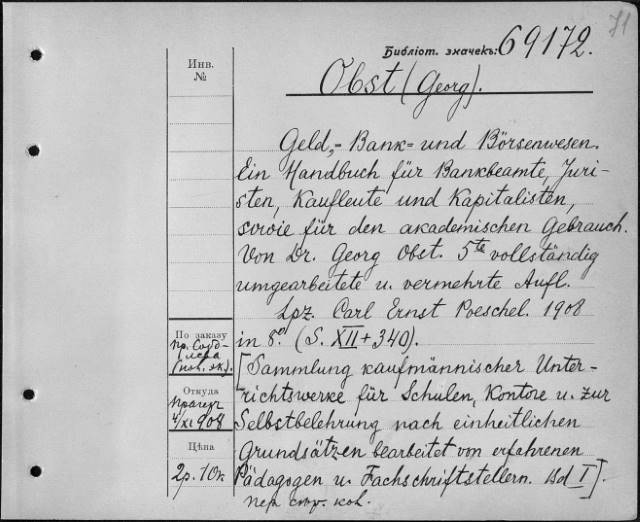 71
Библіот. значекъ: 69172.
Инв.
№
Obst (Georg).
Geld,- Bank- und Börsenwesen.
Ein Handbuch für Bankbeamte, Juri-
sten, Kaufleute und Kapitalisten,
sowie für den akademischen Gebrauch.
Von Dr. Georg Obst. 5te vollständig
umgearbeitete u. vermehrte Aufl.
Lpz. Carl Ernst Poeschel. 1908
in 8º. (S. XII + 340).
[Sammlung kaufmännischer Unter-
richtswerke für Schulen, Kontore u. zur
Selbstbelehrung nach einheitlichen
Grundsätzen bearbeitet von erfahrenen
Pädagogen u. Fachschriftstellern. Bd I].
По заказу
пр.
Откуда
4/XI 1908
Цѣна
2р. 10к